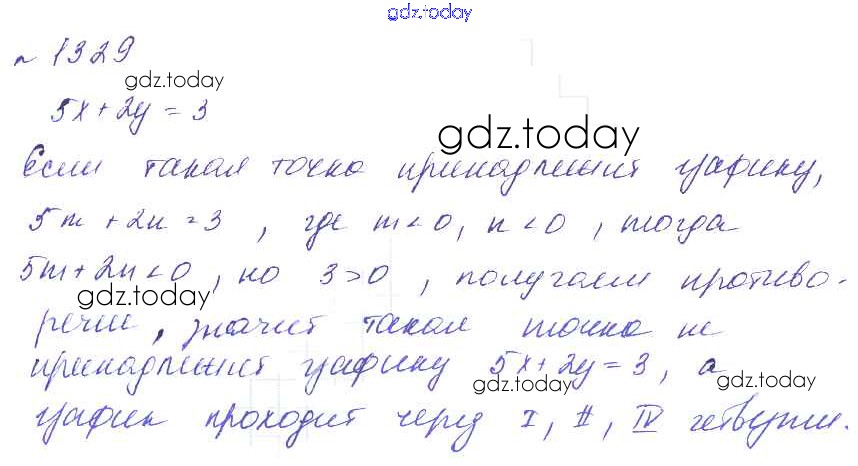 gdz.today
n 1329
gdz.today
5x + 2y = 3
gdz.today
Если такая точка принадлежит графику,
5m + 2n = 3, где m < 0, n < 0, тогда
5m + 2n < 0, но 3 > 0, получаем противо-
gdz.today
речие, значит такая точка не
принадлежит графику 5x + 2y = 3, а
gdz.today
gdz.today
график проходит через I, II, IV четверти.